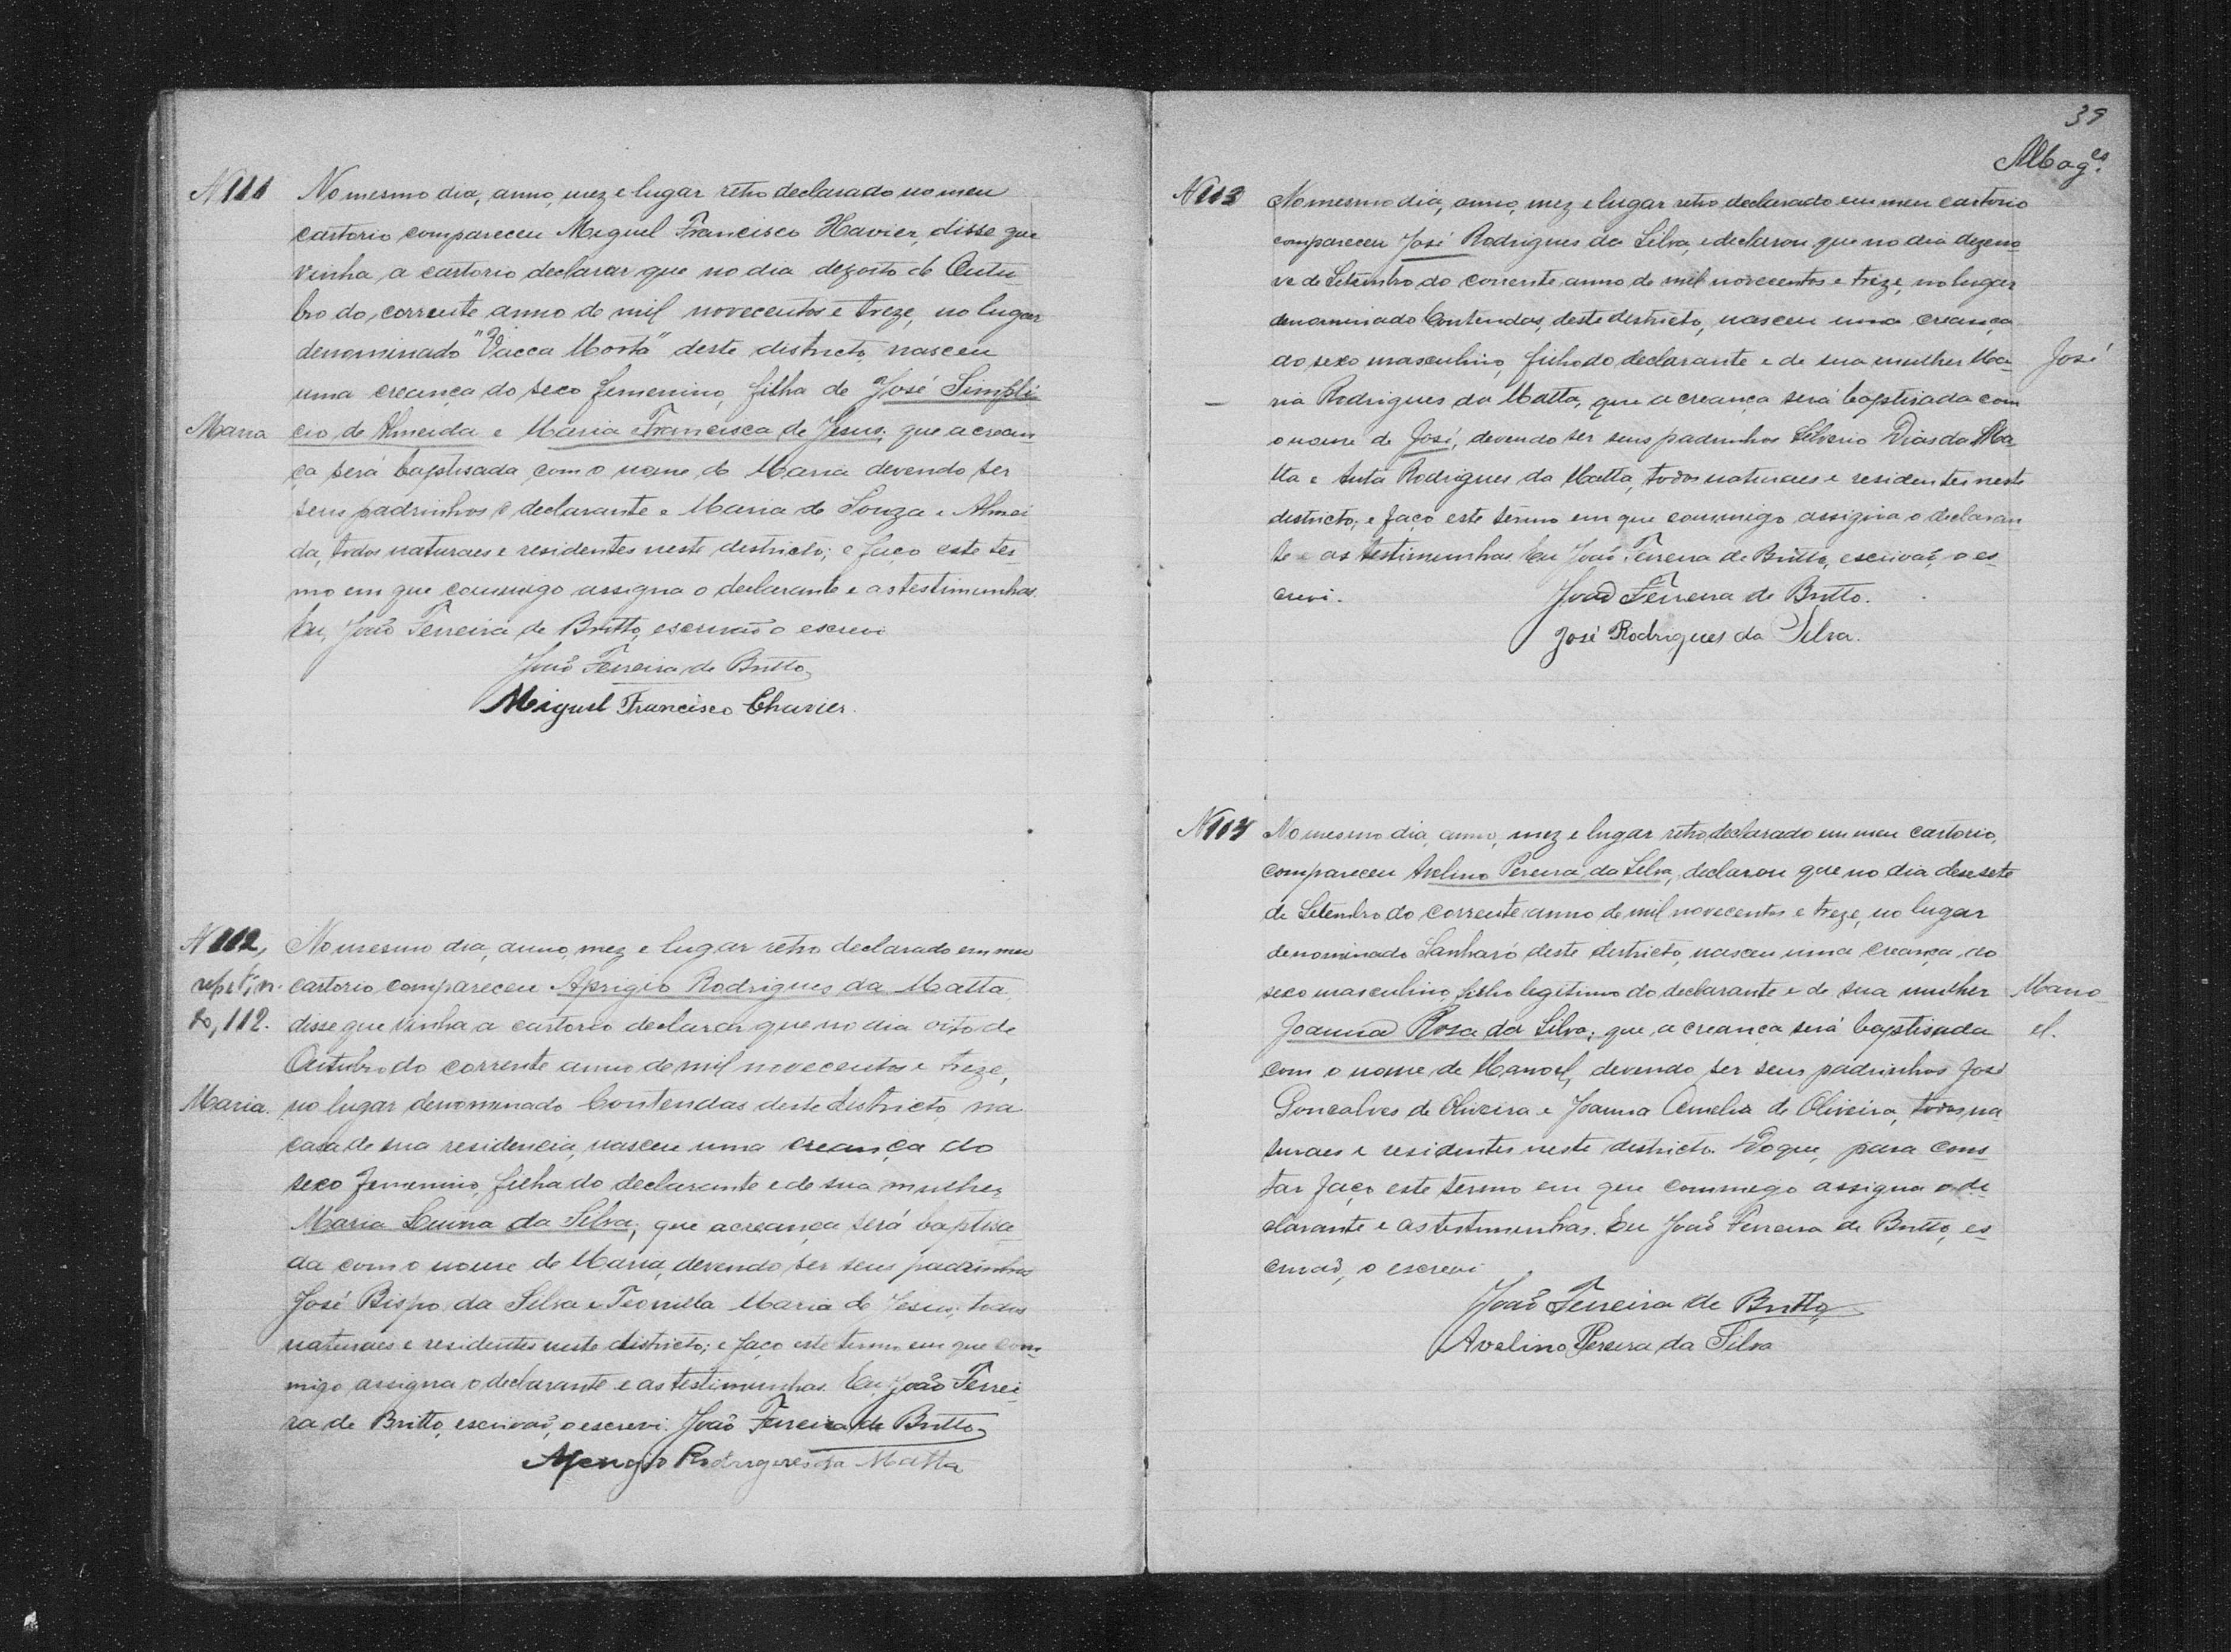 N 111 No mesmo dia, anno, mez e lugar retro declarado no meu
cartorio compareceu Miguel Francisco Xavier, disse que
vinha a cartorio declarar que no dia dezoito de Outu-
bro do corrente anno de mil novecentos e treze, no lugar
denominado "Vacca Morta" deste districto, nasceu
uma creança do sexo femenino, filha de José Simpli-
Maria cio de Almeida e Maria Francisca de Jesus; que a crean
ça será baptisada com o nome de Maria devendo ser
seus padrinhos o declarante e Maria de Souza e Almei
da, todos naturaes e residentes neste districto; e faço este ter-
mo em que commigo assigna o declarante e as testimunhas.
Eu, João Ferreira de Britto, escrivão o escrevi
João Ferreira de Britto
Miguel Francisco Chavier.
N 112, No mesmo dia, anno, mez e lugar retro declarado em meu
cartorio compareceu Aprigio Rodrigues da Matta
112. disse que vinha a cartorio declarar que no dia oito de
Outubro do corrente anno de mil novecentos e treze,
Maria. no lugar denominado Contendas deste districto, na
casa de sua residencia, nasceu uma creança do
sexo femenino, filha do declarante e de sua mulher
Maria da Silva; que a creança será baptisa-
da com o nome de Maria, devendo ser seus padrinhos
José Bispo da Silva e Teonilla Maria de Jesus, todos
naturaes e residentes neste districto; e faço este termo em que com-
migo assigna o declarante e as testimunhas. Eu, João Ferrei-
ra de Britto, escrivão, o escrevi. João Ferreira de Britto
Rodrigues da Matta
39
N 113 No mesmo dia, anno, mez e lugar retro declarado em meu cartorio
compareceu José Rodrigues da Silva, e declarou que no dia dezeno-
ve de Setembro do corrente anno de mil novecentos e treze, no lugar
denominado Contendas, deste districto, nasceu uma creança
do sexo masculino, filho do declarante e de sua mulher Ma- José
ria Rodrigues da Matta, que a creança será baptisada com
o nome de José, devendo ser seus padrinhos Silverio Dias da Ma-
tta e Auta Rodrigues da Matta, todos naturaes e residentes neste
districto; e faço este termo em que commigo assigna o declaran
te e as testimunhas. Eu João Ferreira de Britto, escrivão, o es-
crevi. João Ferreira de Britto.
José Rodrigues da Silva.
N 114 No mesmo dia, anno, mez e lugar retro declarado em meu cartorio,
compareceu Avelino Pereira da Silva, declarou que no dia desesete
de Setembro do corrente anno de mil novecentos e treze, no lugar
denominado Sanharó deste districto, nasceu uma creança do
sexo masculino, filho legitimo do declarante e de sua mulher Mano-
Joanna Rosa da Silva; que a creança será baptisada el.
com o nome de Manoel, devendo ser seus padrinhos José
Goncalves de Oliveira e Joanna Amelia de Oliveira, todos na-
turaes e residentes neste districto. Do que, para cons-
tar faço este termo em que commigo assigna o de-
clarante e as testimunhas. Eu João Ferreira de Britto, es-
crivão, o escrevi
João Ferreira de Britto
Avelino Pereira da Silva